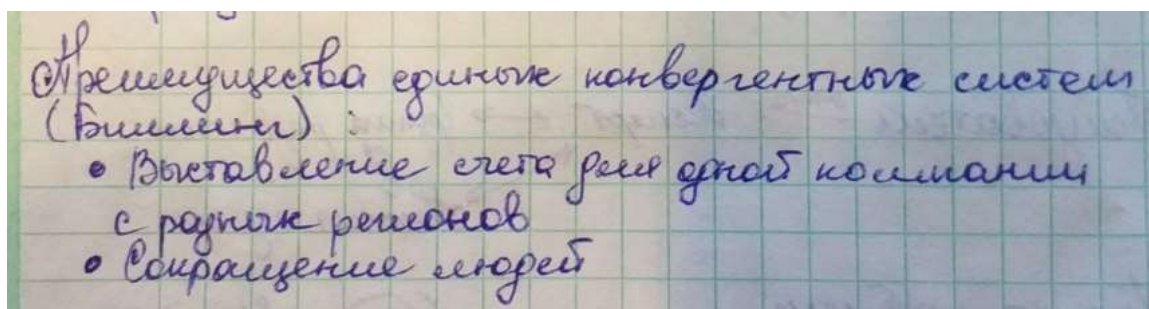 Преимущества единых конвергентных систем
(Биллинг) :
• Выставление счета для одной компании
с разных регионов
• Сокращение людей